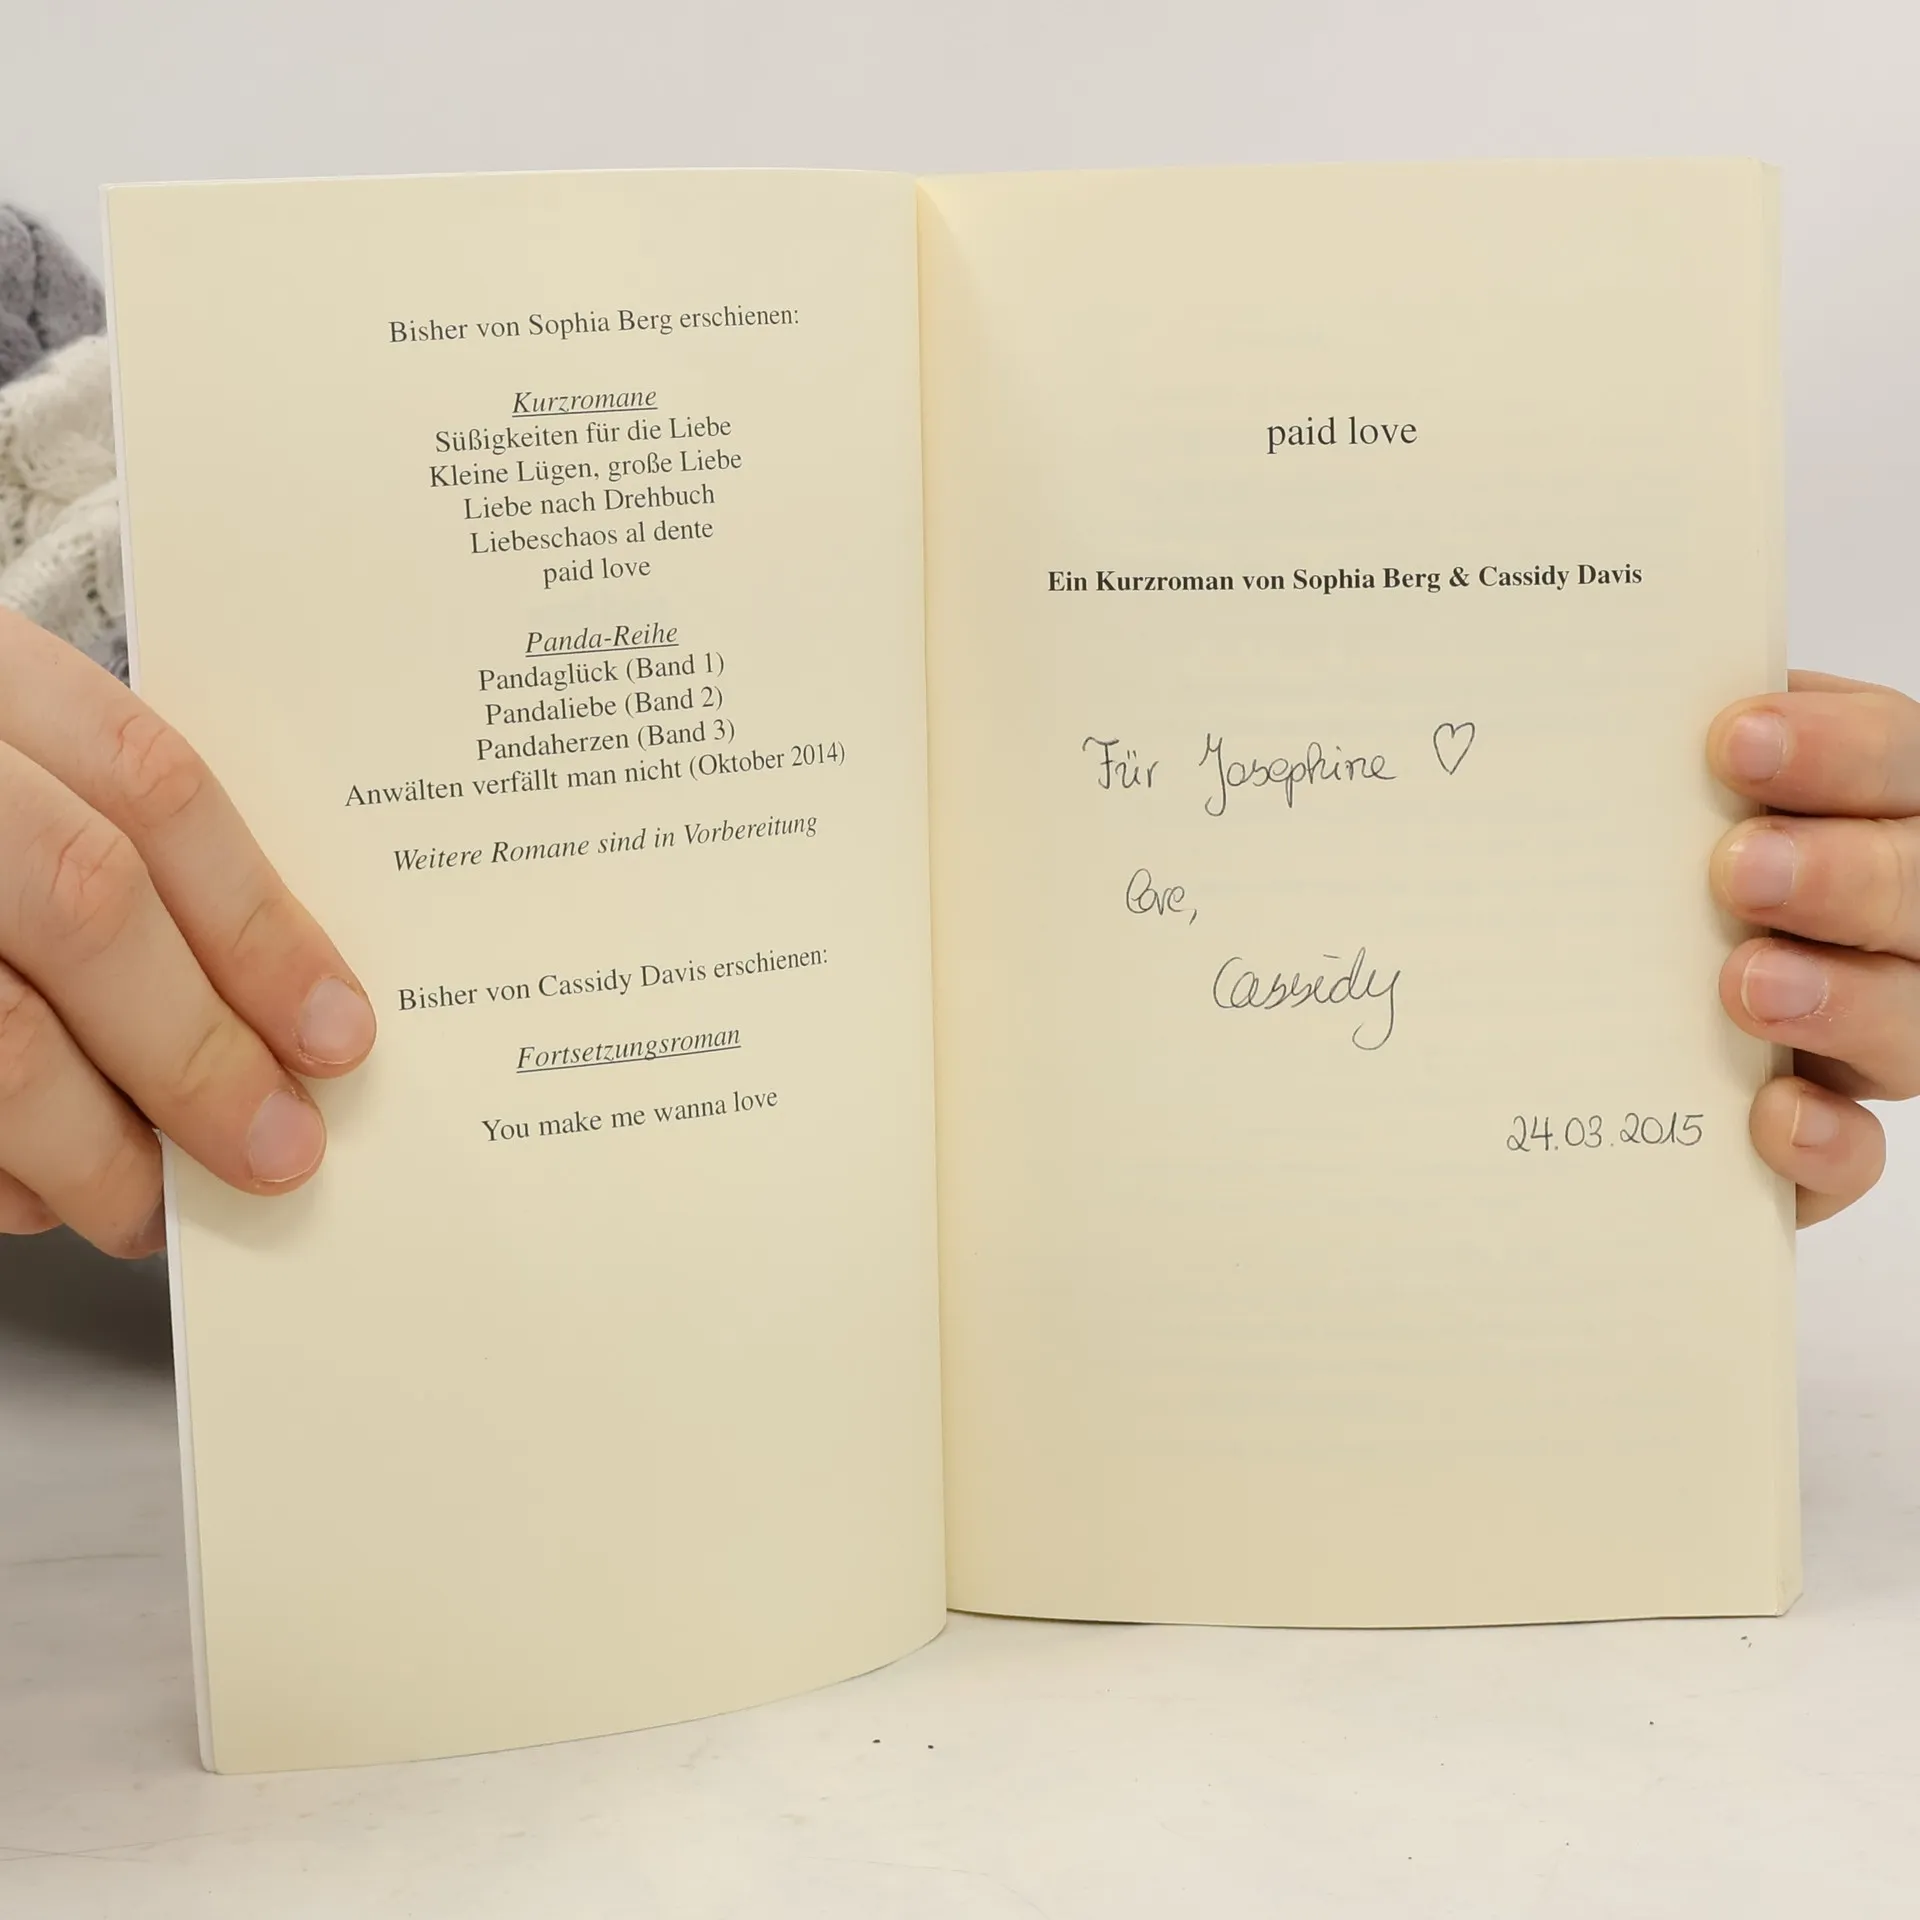 Bisher von Sophia Berg erschienen:
Kurzromane
Süßigkeiten für die Liebe
Kleine Lügen, große Liebe
Liebe nach Drehbuch
Liebeschaos al dente
paid love
Panda-Reihe
Pandaglück (Band 1)
Pandaliebe (Band 2)
Pandaherzen (Band 3)
Anwälten verfällt man nicht (Oktober 2014)
Weitere Romane sind in Vorbereitung
Bisher von Cassidy Davis erschienen:
Fortsetzungsroman
You make me wanna love
paid love
Ein Kurzroman von Sophia Berg & Cassidy Davis
Für Josephine ♡
Love,
Cassidy
24.03.2015